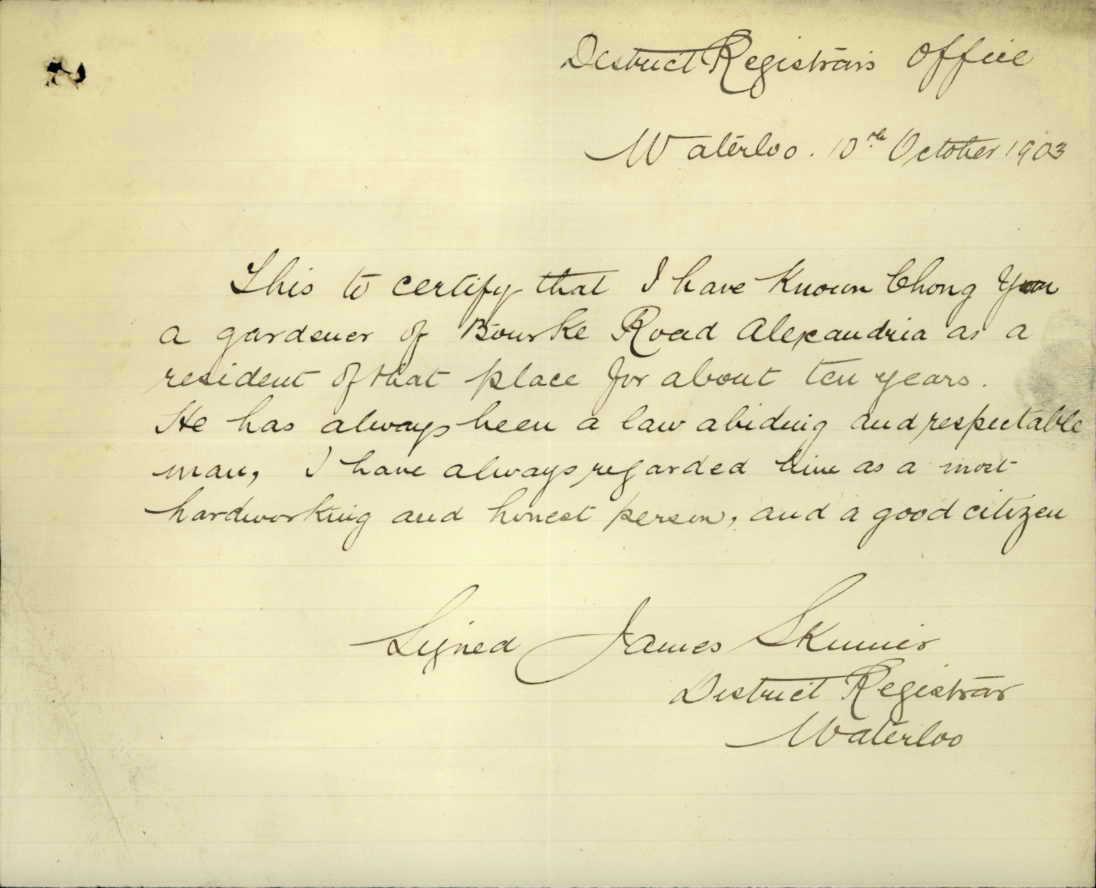 District Registrar's Office
Waterloo. 10th October 1903
This to certify that I have known Chong
a gardener of Bourke Road Alexandria as a
resident of that place for about ten years.
He has always been a law abiding and respectable
man, I have always regarded him as a most
hardworking and honest person, and a good citizen
Signed James Skinner
District Registrar
Waterloo